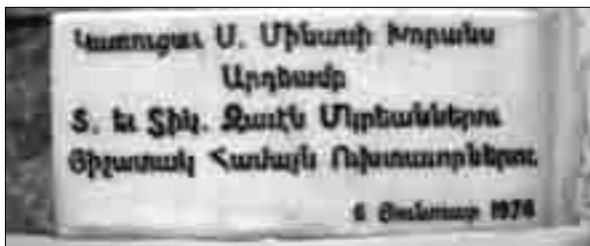 Կառուցաւ Ս. Մինասի Խորանս
Արդեամբ
Տ. եւ Տիկ. Զաւէն Մլրեաններու
Յիշատակ Համայն Ուխտաւորներու
6 Յունուար 1974